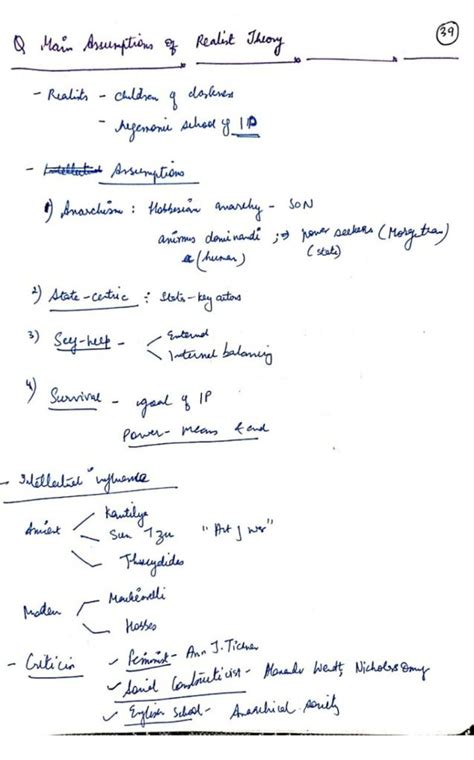 39
Q Main Assumptions of Realist Theory
- Realists - children of darkness
- Hegemonic school of IP
- Assumptions
1) Anarchism : Hobbesian anarchy - SON
animus dominandi ; ⇒ power seekers (Morgentau)
(human) (state)
2) State-centric : State - key actors
3) Self-help - External
Internal balancing
4) Survival - goal of IP
Power - means & end
- Intellectual influence
Ancient Kautilya
Sun Tzu "Art of war"
Thucydides
Modern Machiavelli
Hobbes
- Criticism ✓ Feminist - Ann J. Tickner
✓ Social Constructivist - Wendt, Nicholas Onuf
✓ English School - Anarchical society